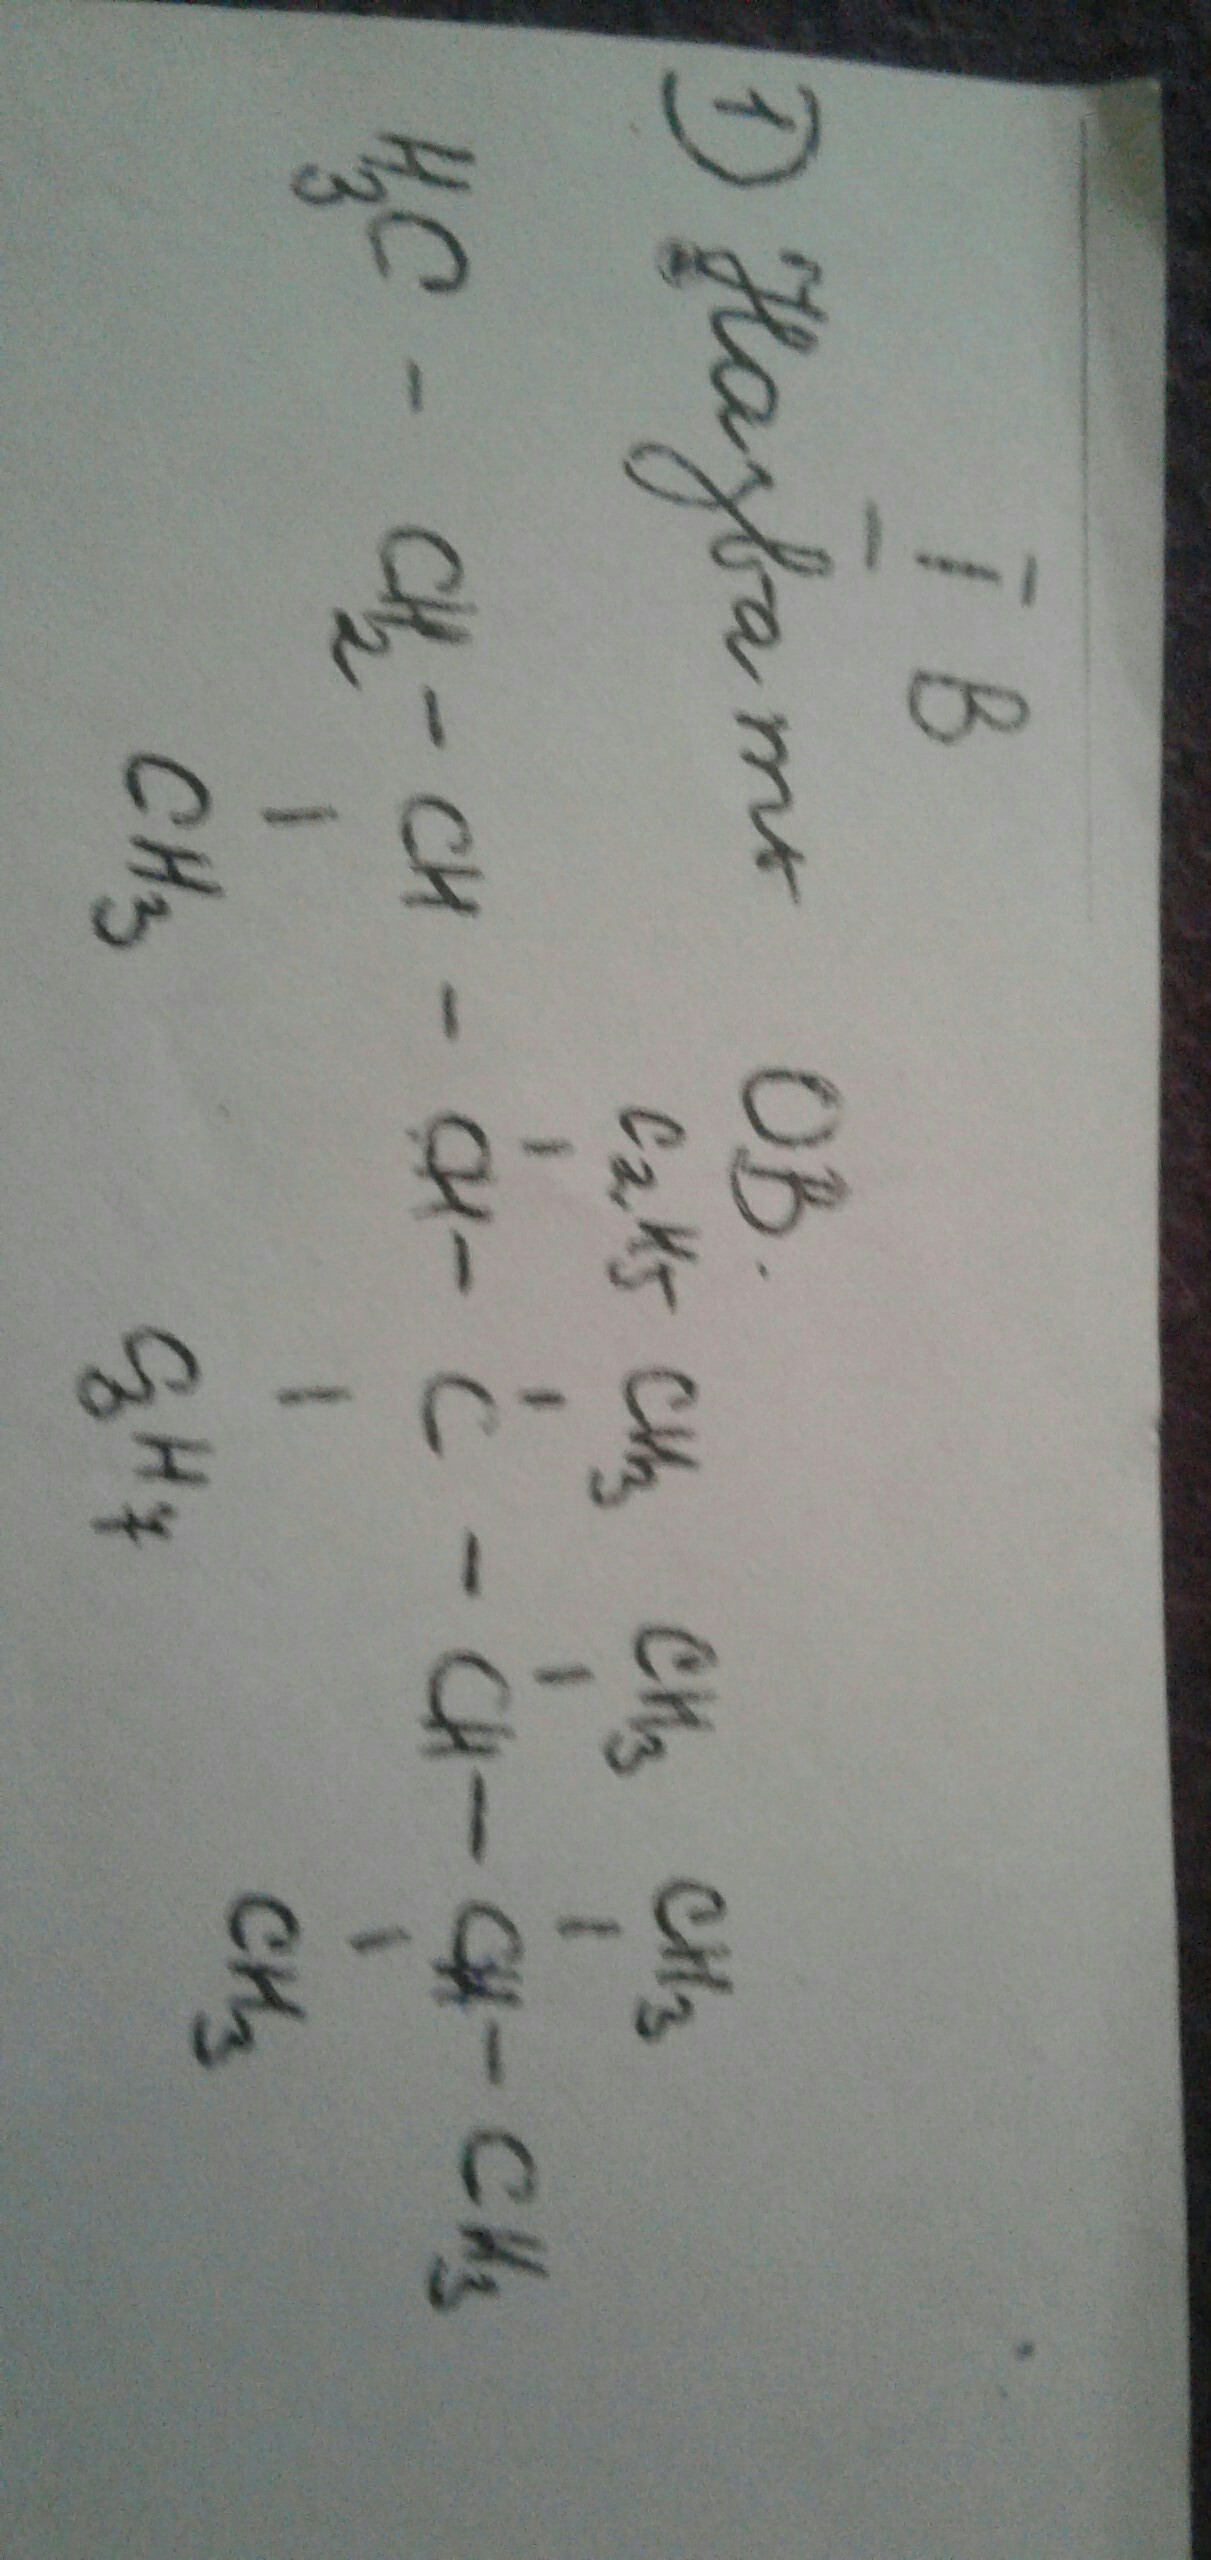 I B
1) Назвать ОВ.
C2H5 CH3 CH3 CH3
H3C - CH2 - CH - CH - C - CH - CH - CH3
CH3 C3H7 CH3